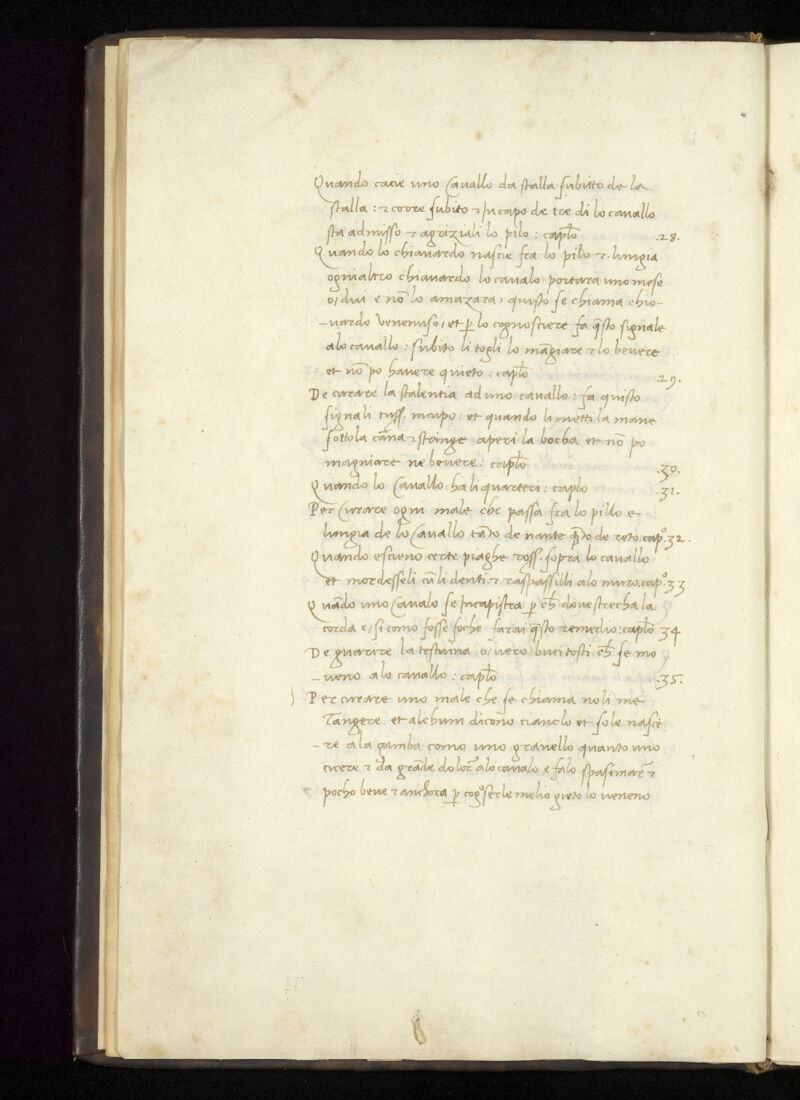 Quando cacie uno Cavallo da stalla subitto de la
stalla : ⁊ corre subito ⁊ In capo de tre di lo cavallo
sta admisso ⁊ agriziali lo pilo : caplo .28.
Quando lo chiavardo nascie fra lo pilo ⁊ lungia
ogni altro chiavardo lo cavalo portara uno mese
o/ dui e nō lo amazara, quisto se chiama chio-
-vardo venenuso, et p̱ lo cognosciere fa q̄sto signale
alo cavallo : subito li togli lo māgiare ⁊ lo bevere
et nō po havere quieto : caplo .29.
De curare la stalentia ad uno cavallo : fa quisto
signali tuss. incupo : et quando li metti la mane
sotto la cāna ⁊ stringe aperi la bocha et nō po
magniare ne bevere : caplo .30.
Quando lo Cavallo ha li quarteri : caplo .31.
Per Curare ogni male che passa fra lo pillo e
lungia de lo Cavallo tāto de nante q̄to de reto : capº. 32.
Quando escieno certe piaghe ross. sopra lo cavallo
et mordesseli cū li denti ⁊ raspassilli alo muro. capº. 33
Quādo uno Cavalo se Incapistra p̱ ch̄ dove strecha la
corda e/ si como fosse foche farai q̄sto remedio : caplo 34
De guarire la testuina o/ vero buci tosti ch̄ se mo
-veno alo cavallo : caplo .35.
Per curare uno male che se chiama noli me
Tangere et alchuni dicono cianclo et sole nasce
-re ala gamba como uno granello quanto uno
cicere ⁊ da grāde dolor̄ alo cavalo e falo spasimar̄ ⁊
pocho beve ⁊ anchora p̱ cogºserle melio gieto lo veneno